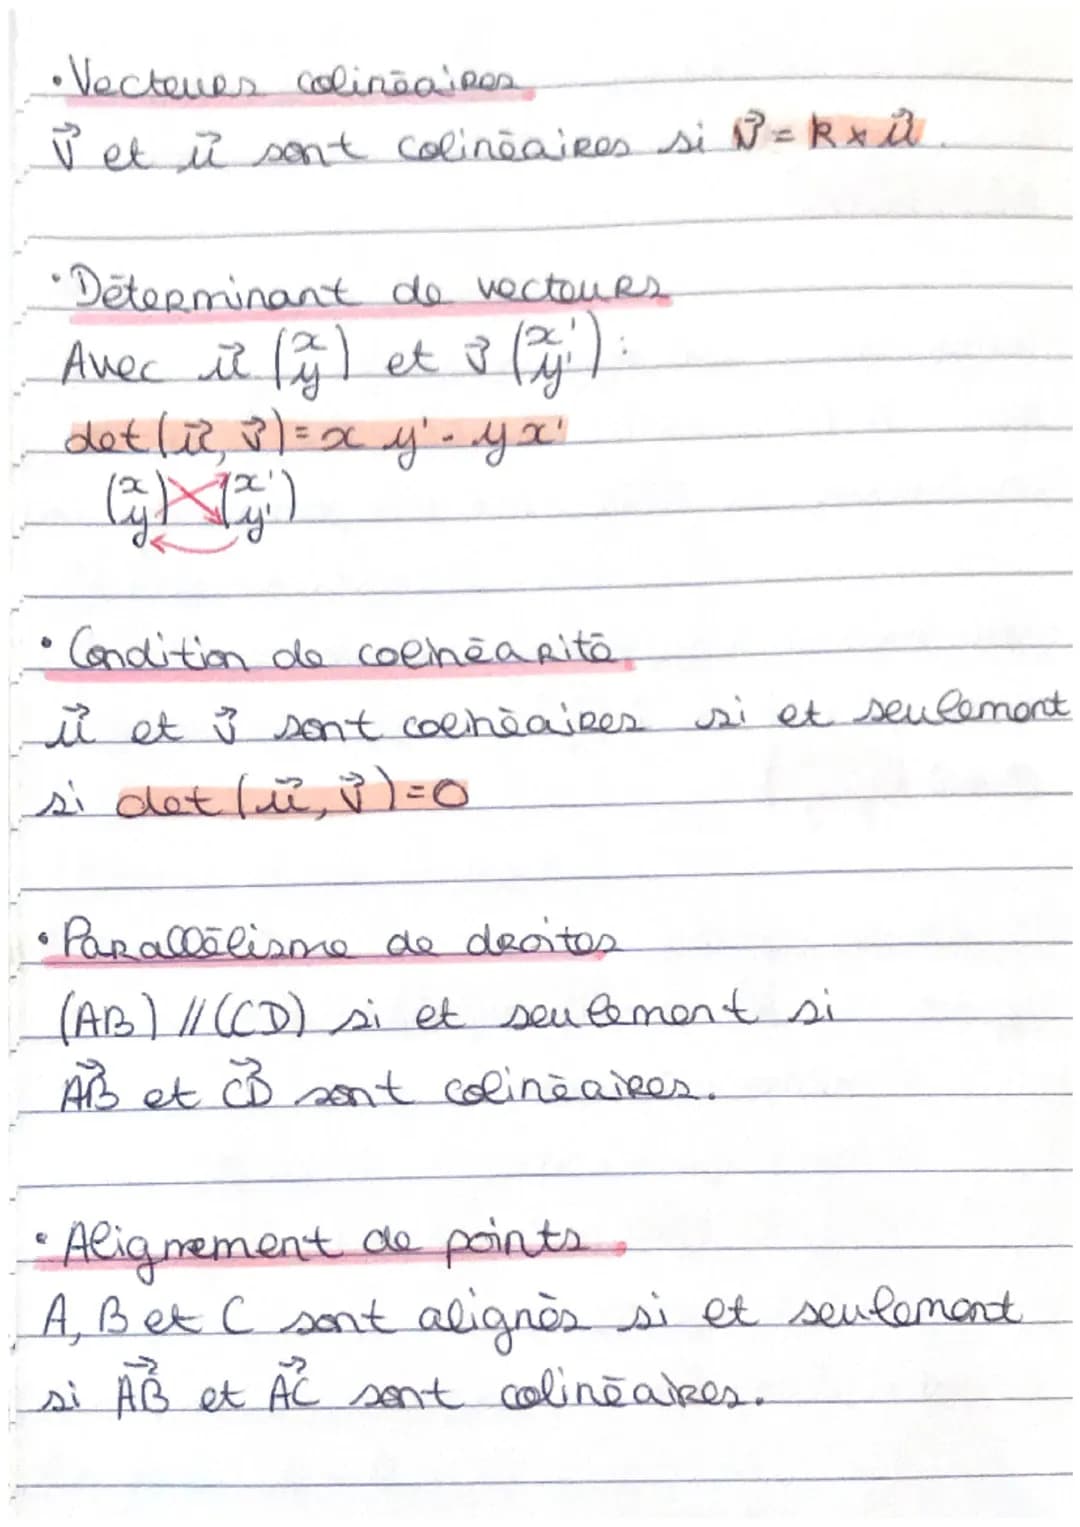 • Vecteurs colinéaires
v⃗ et u⃗ sont colinéaires si v⃗ = k × u⃗.
• Déterminant de vecteurs
Avec u⃗ (x y) et v⃗ (x' y') :
det (u⃗, v⃗) = x y' - y x'
(x y) (x' y')
• Condition de colinéarité
u⃗ et v⃗ sont colinéaires si et seulement
si det (u⃗, v⃗) = 0
• Parallélisme de droites
(AB) // (CD) si et seulement si
AB⃗ et CD⃗ sont colinéaires.
• Alignement de points
A, B et C sont alignés si et seulement
si AB⃗ et AC⃗ sont colinéaires.